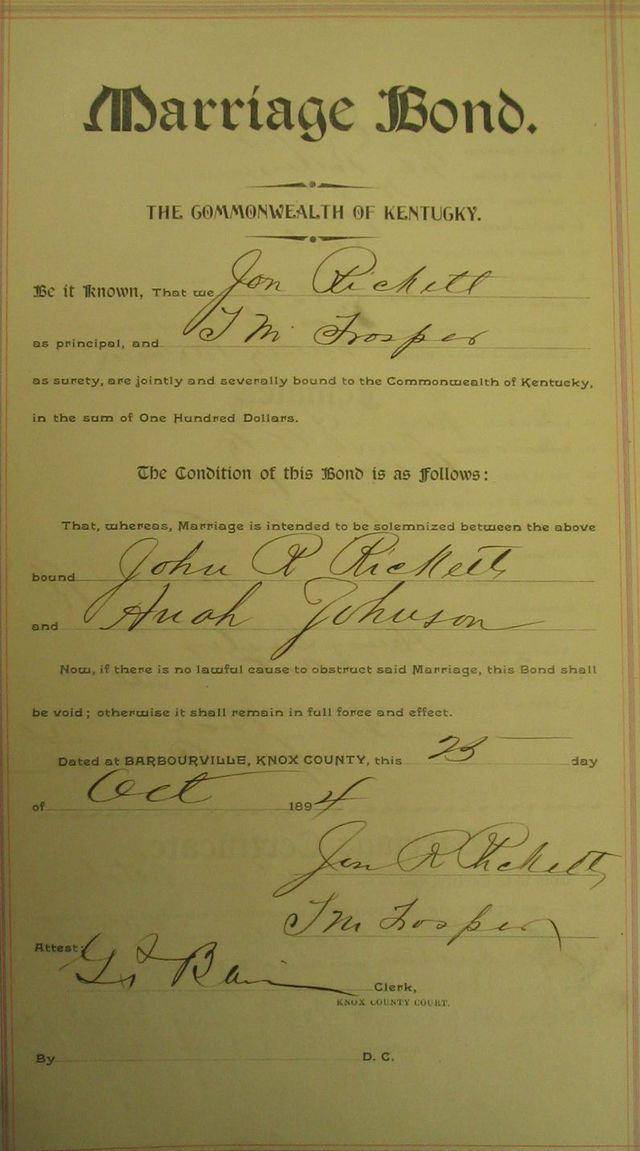 Marriage Bond.
THE COMMONWEALTH OF KENTUCKY.
Be it Known, That we Jon Rickett
as principal, and T M Frosper
as surety, are jointly and severally bound to the Commonwealth of Kentucky,
in the sum of One Hundred Dollars.
The Condition of this Bond is as Follows:
That, whereas, Marriage is intended to be solemnized between the above
bound John R Ricketts
and Anah Johnson
Now, if there is no lawful cause to obstruct said Marriage, this Bond shall
be void; otherwise it shall remain in full force and effect.
Dated at BARBOURVILLE, KNOX COUNTY, this 25 day
of Oct 1894
Jon R Ricketts
T M Frosper
Attest:
Clerk,
KNOX COUNTY COURT.
By D. C.